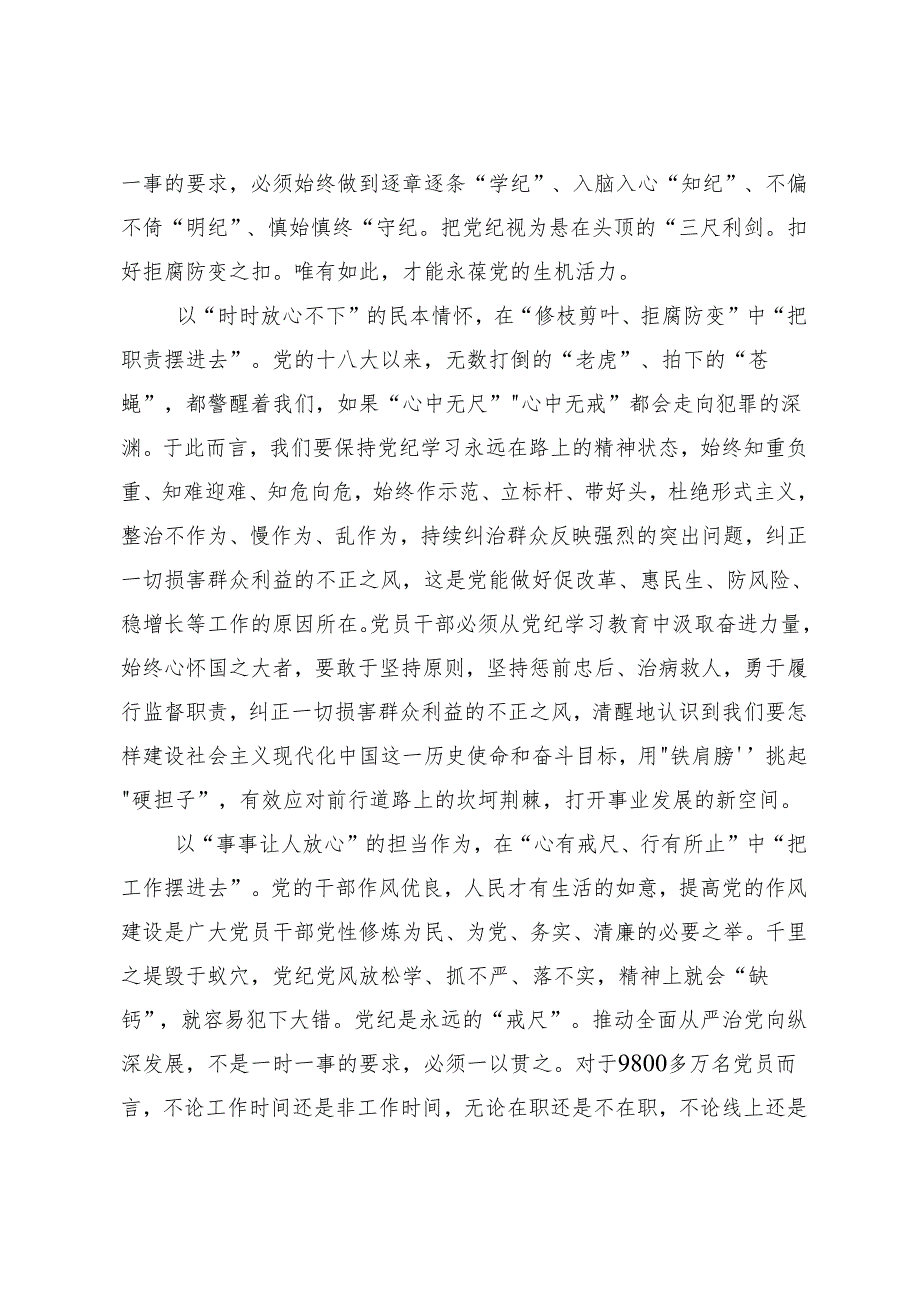 一事的要求，必须始终做到逐章逐条“学纪”、入脑入心“知纪”、不偏
不倚“明纪”、慎始慎终“守纪。把党纪视为悬在头顶的“三尺利剑。扣
好拒腐防变之扣。唯有如此，才能永葆党的生机活力。
以“时时放心不下”的民本情怀，在“修枝剪叶、拒腐防变”中“把
职责摆进去”。党的十八大以来，无数打倒的“老虎”、拍下的“苍
蝇”，都警醒着我们，如果“心中无尺”"心中无戒”都会走向犯罪的深
渊。于此而言，我们要保持党纪学习永远在路上的精神状态，始终知重负
重、知难迎难、知危向危，始终作示范、立标杆、带好头，杜绝形式主义，
整治不作为、慢作为、乱作为，持续纠治群众反映强烈的突出问题，纠正
一切损害群众利益的不正之风，这是党能做好促改革、惠民生、防风险、
稳增长等工作的原因所在。党员干部必须从党纪学习教育中汲取奋进力量，
始终心怀国之大者，要敢于坚持原则，坚持惩前忠后、治病救人，勇于履
行监督职责，纠正一切损害群众利益的不正之风，清醒地认识到我们要怎
样建设社会主义现代化中国这一历史使命和奋斗目标，用"铁肩膀'’挑起
"硬担子”，有效应对前行道路上的坎坷荆棘，打开事业发展的新空间。
以“事事让人放心”的担当作为，在“心有戒尺、行有所止”中“把
工作摆进去”。党的干部作风优良，人民才有生活的如意，提高党的作风
建设是广大党员干部党性修炼为民、为党、务实、清廉的必要之举。千里
之堤毁于蚁穴，党纪党风放松学、抓不严、落不实，精神上就会“缺
钙”，就容易犯下大错。党纪是永远的“戒尺”。推动全面从严治党向纵
深发展，不是一时一事的要求，必须一以贯之。对于9800多万名党员而
言，不论工作时间还是非工作时间，无论在职还是不在职，不论线上还是